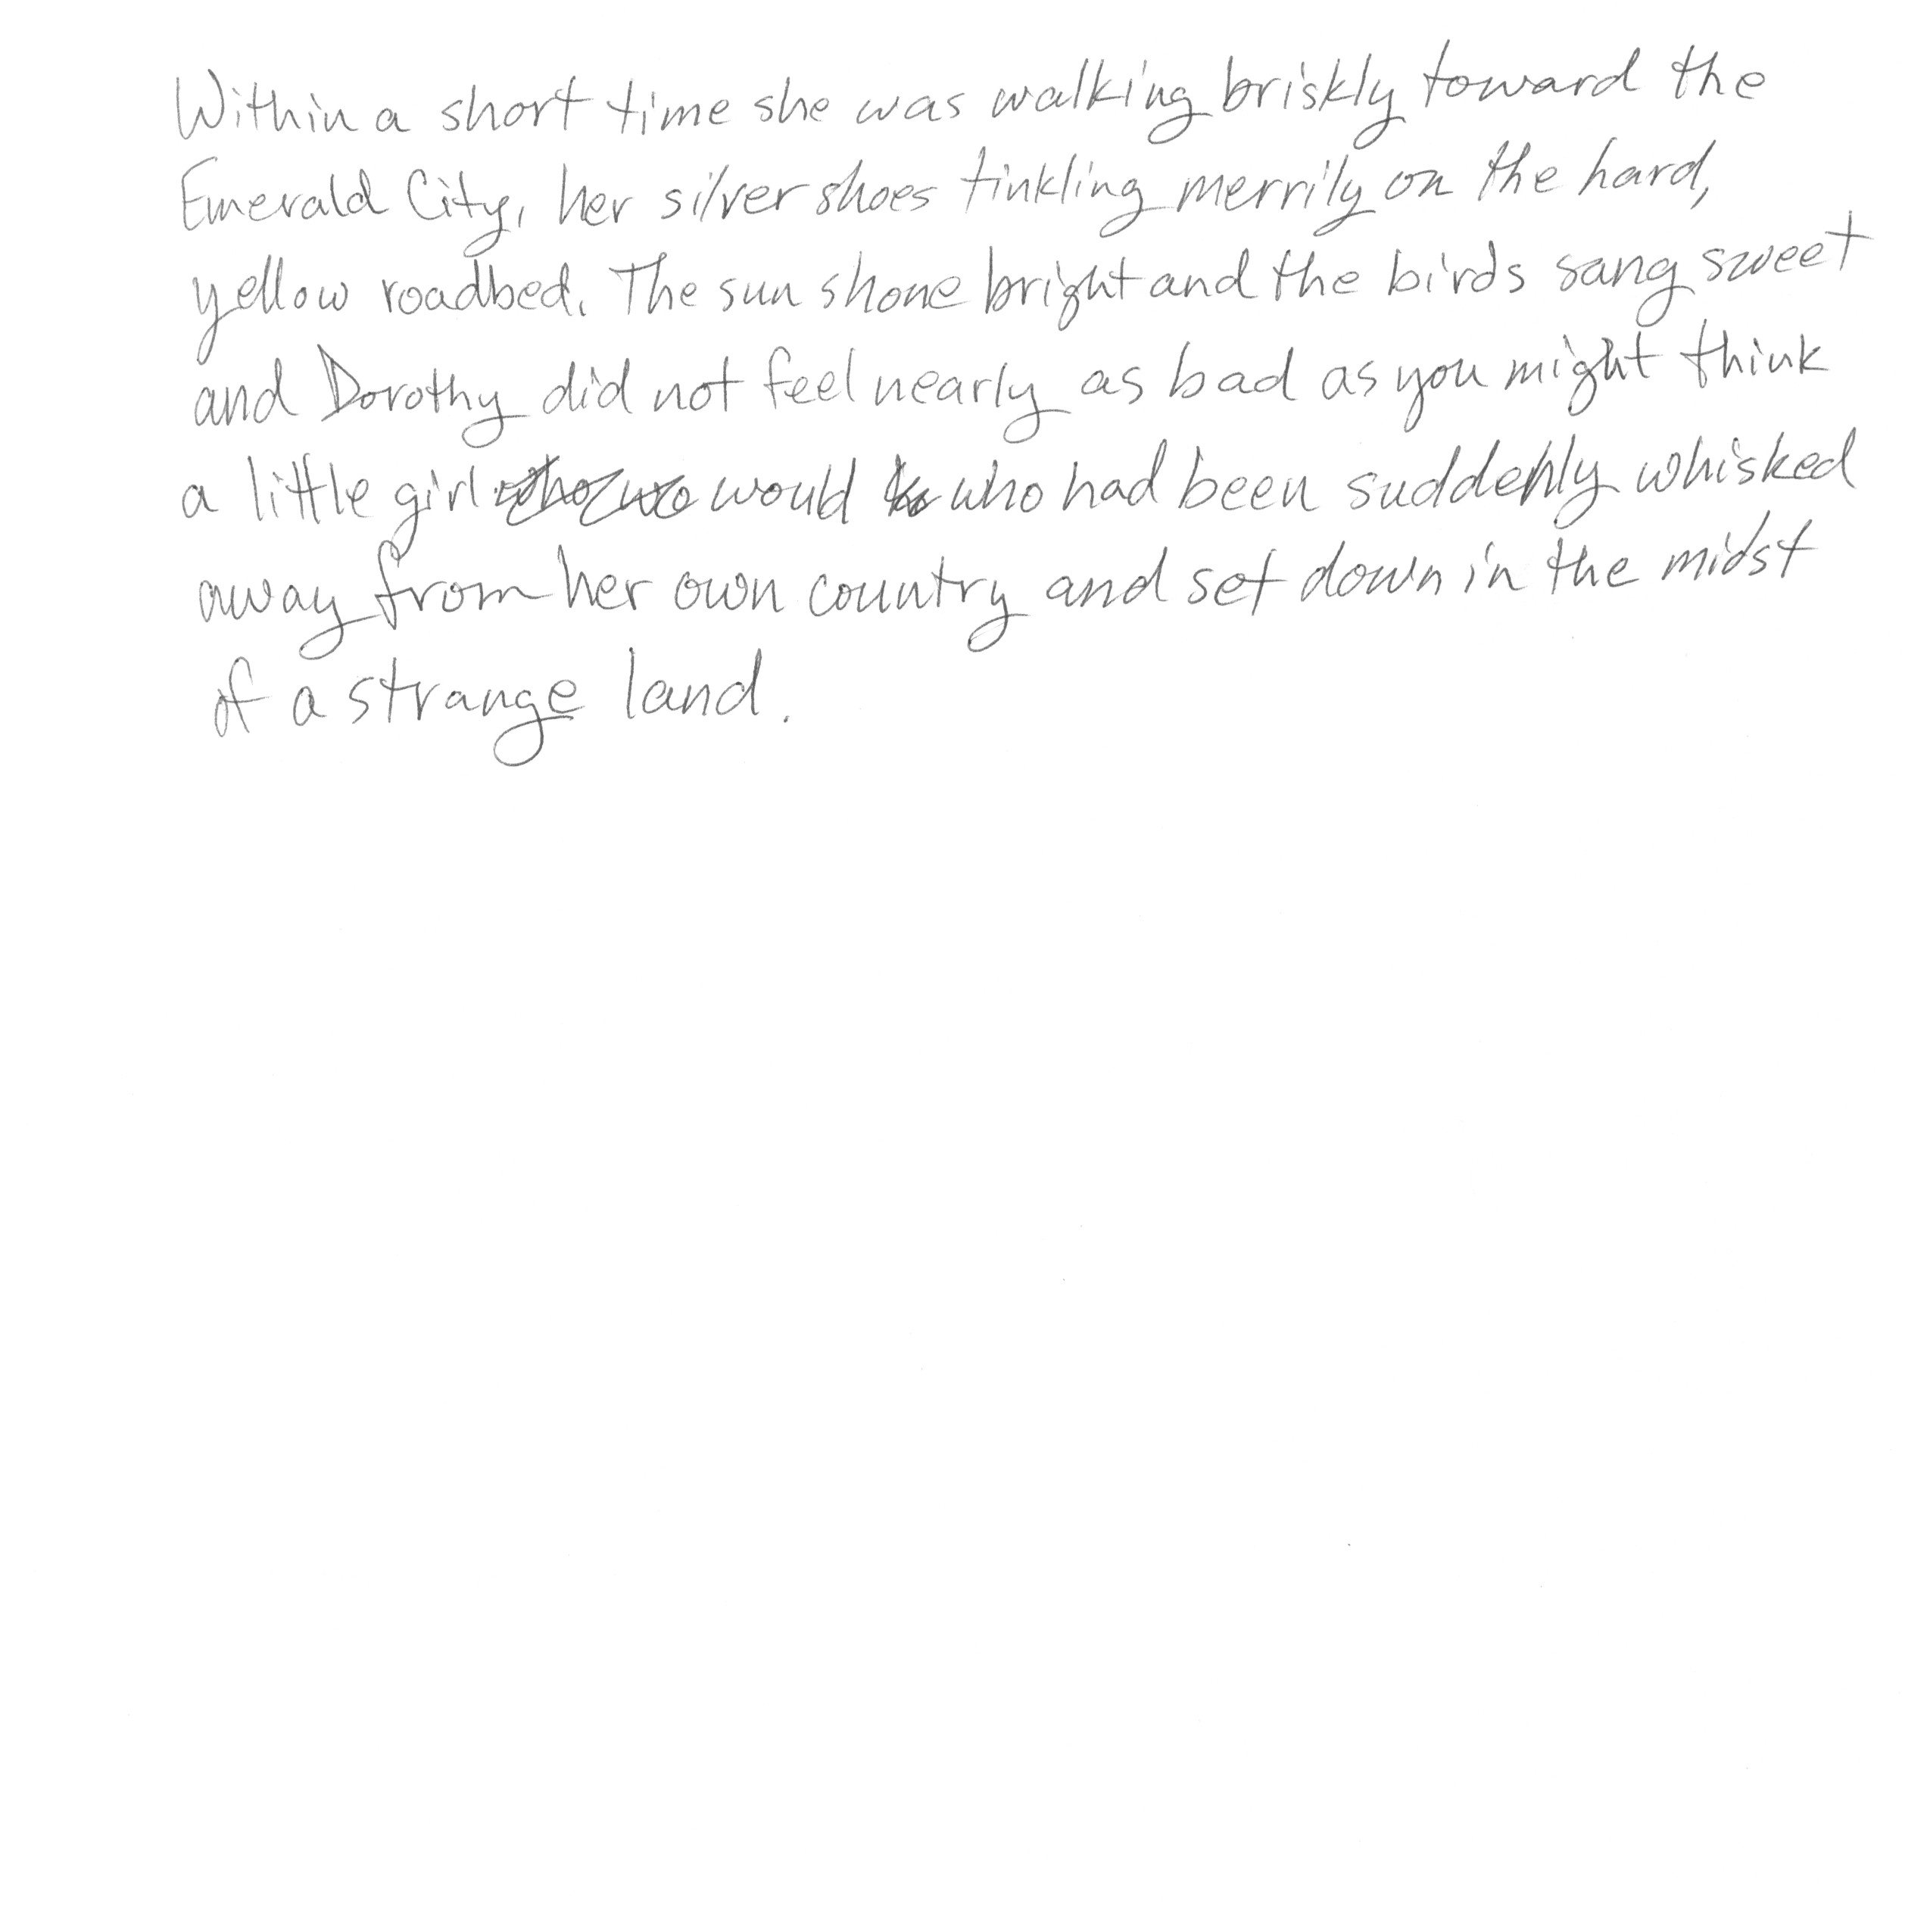 Within a short time she was walking briskly toward the
Emerald City, her silver shoes tinkling merrily on the hard,
yellow roadbed. The sun shone bright and the birds sang sweet
and Dorothy did not feel nearly as bad as you might think
a little girl would who had been suddenly whisked
away from her own country and set down in the midst
of a strange land.